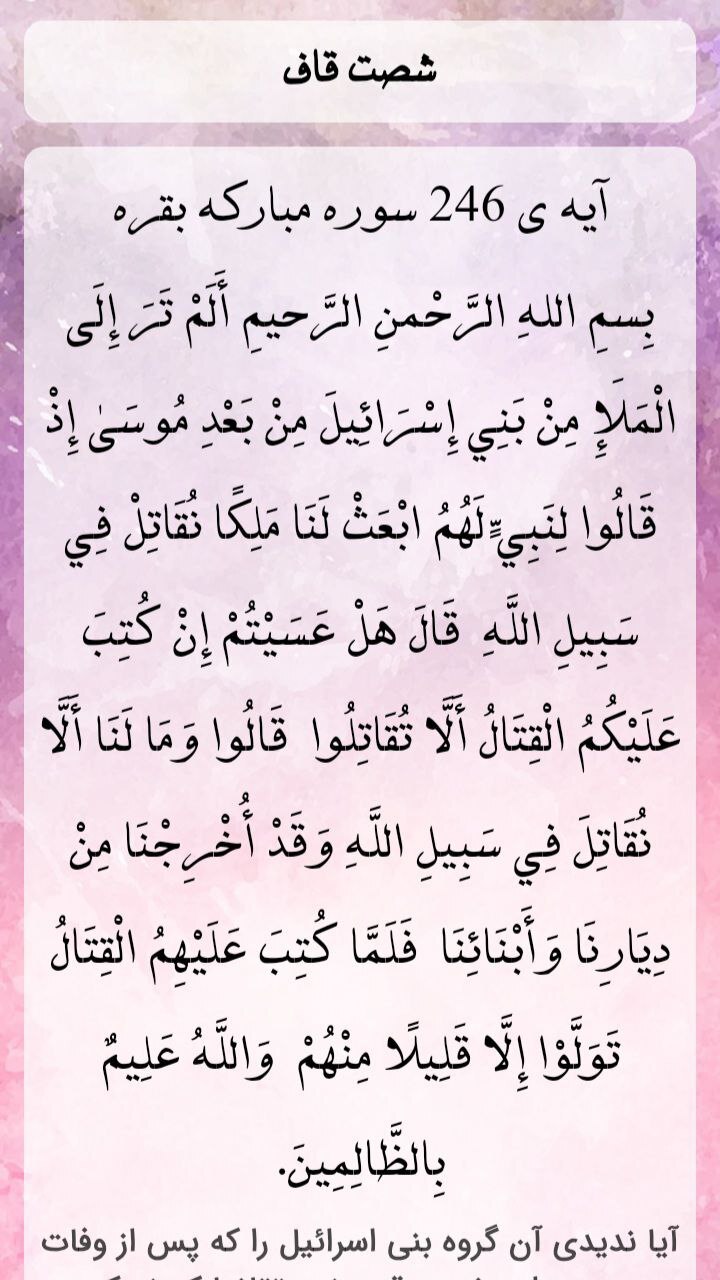 شصت قاف
آیه ی 246 سوره مبارکه بقره
بِسمِ اللهِ الرَّحْمنِ الرَّحیمِ أَلَمْ تَرَ إِلَى
الْمَلَإِ مِنْ بَنِي إِسْرَائِيلَ مِنْ بَعْدِ مُوسَىٰ إِذْ
قَالُوا لِنَبِيٍّ لَهُمُ ابْعَثْ لَنَا مَلِكًا نُقَاتِلْ فِي
سَبِيلِ اللَّهِ قَالَ هَلْ عَسَيْتُمْ إِنْ كُتِبَ
عَلَيْكُمُ الْقِتَالُ أَلَّا تُقَاتِلُوا قَالُوا وَمَا لَنَا أَلَّا
نُقَاتِلَ فِي سَبِيلِ اللَّهِ وَقَدْ أُخْرِجْنَا مِنْ
دِيَارِنَا وَأَبْنَائِنَا فَلَمَّا كُتِبَ عَلَيْهِمُ الْقِتَالُ
تَوَلَّوْا إِلَّا قَلِيلًا مِنْهُمْ وَاللَّهُ عَلِيمٌ
بِالظَّالِمِينَ.
آیا ندیدی آن گروه بنی اسرائیل را که پس از وفات